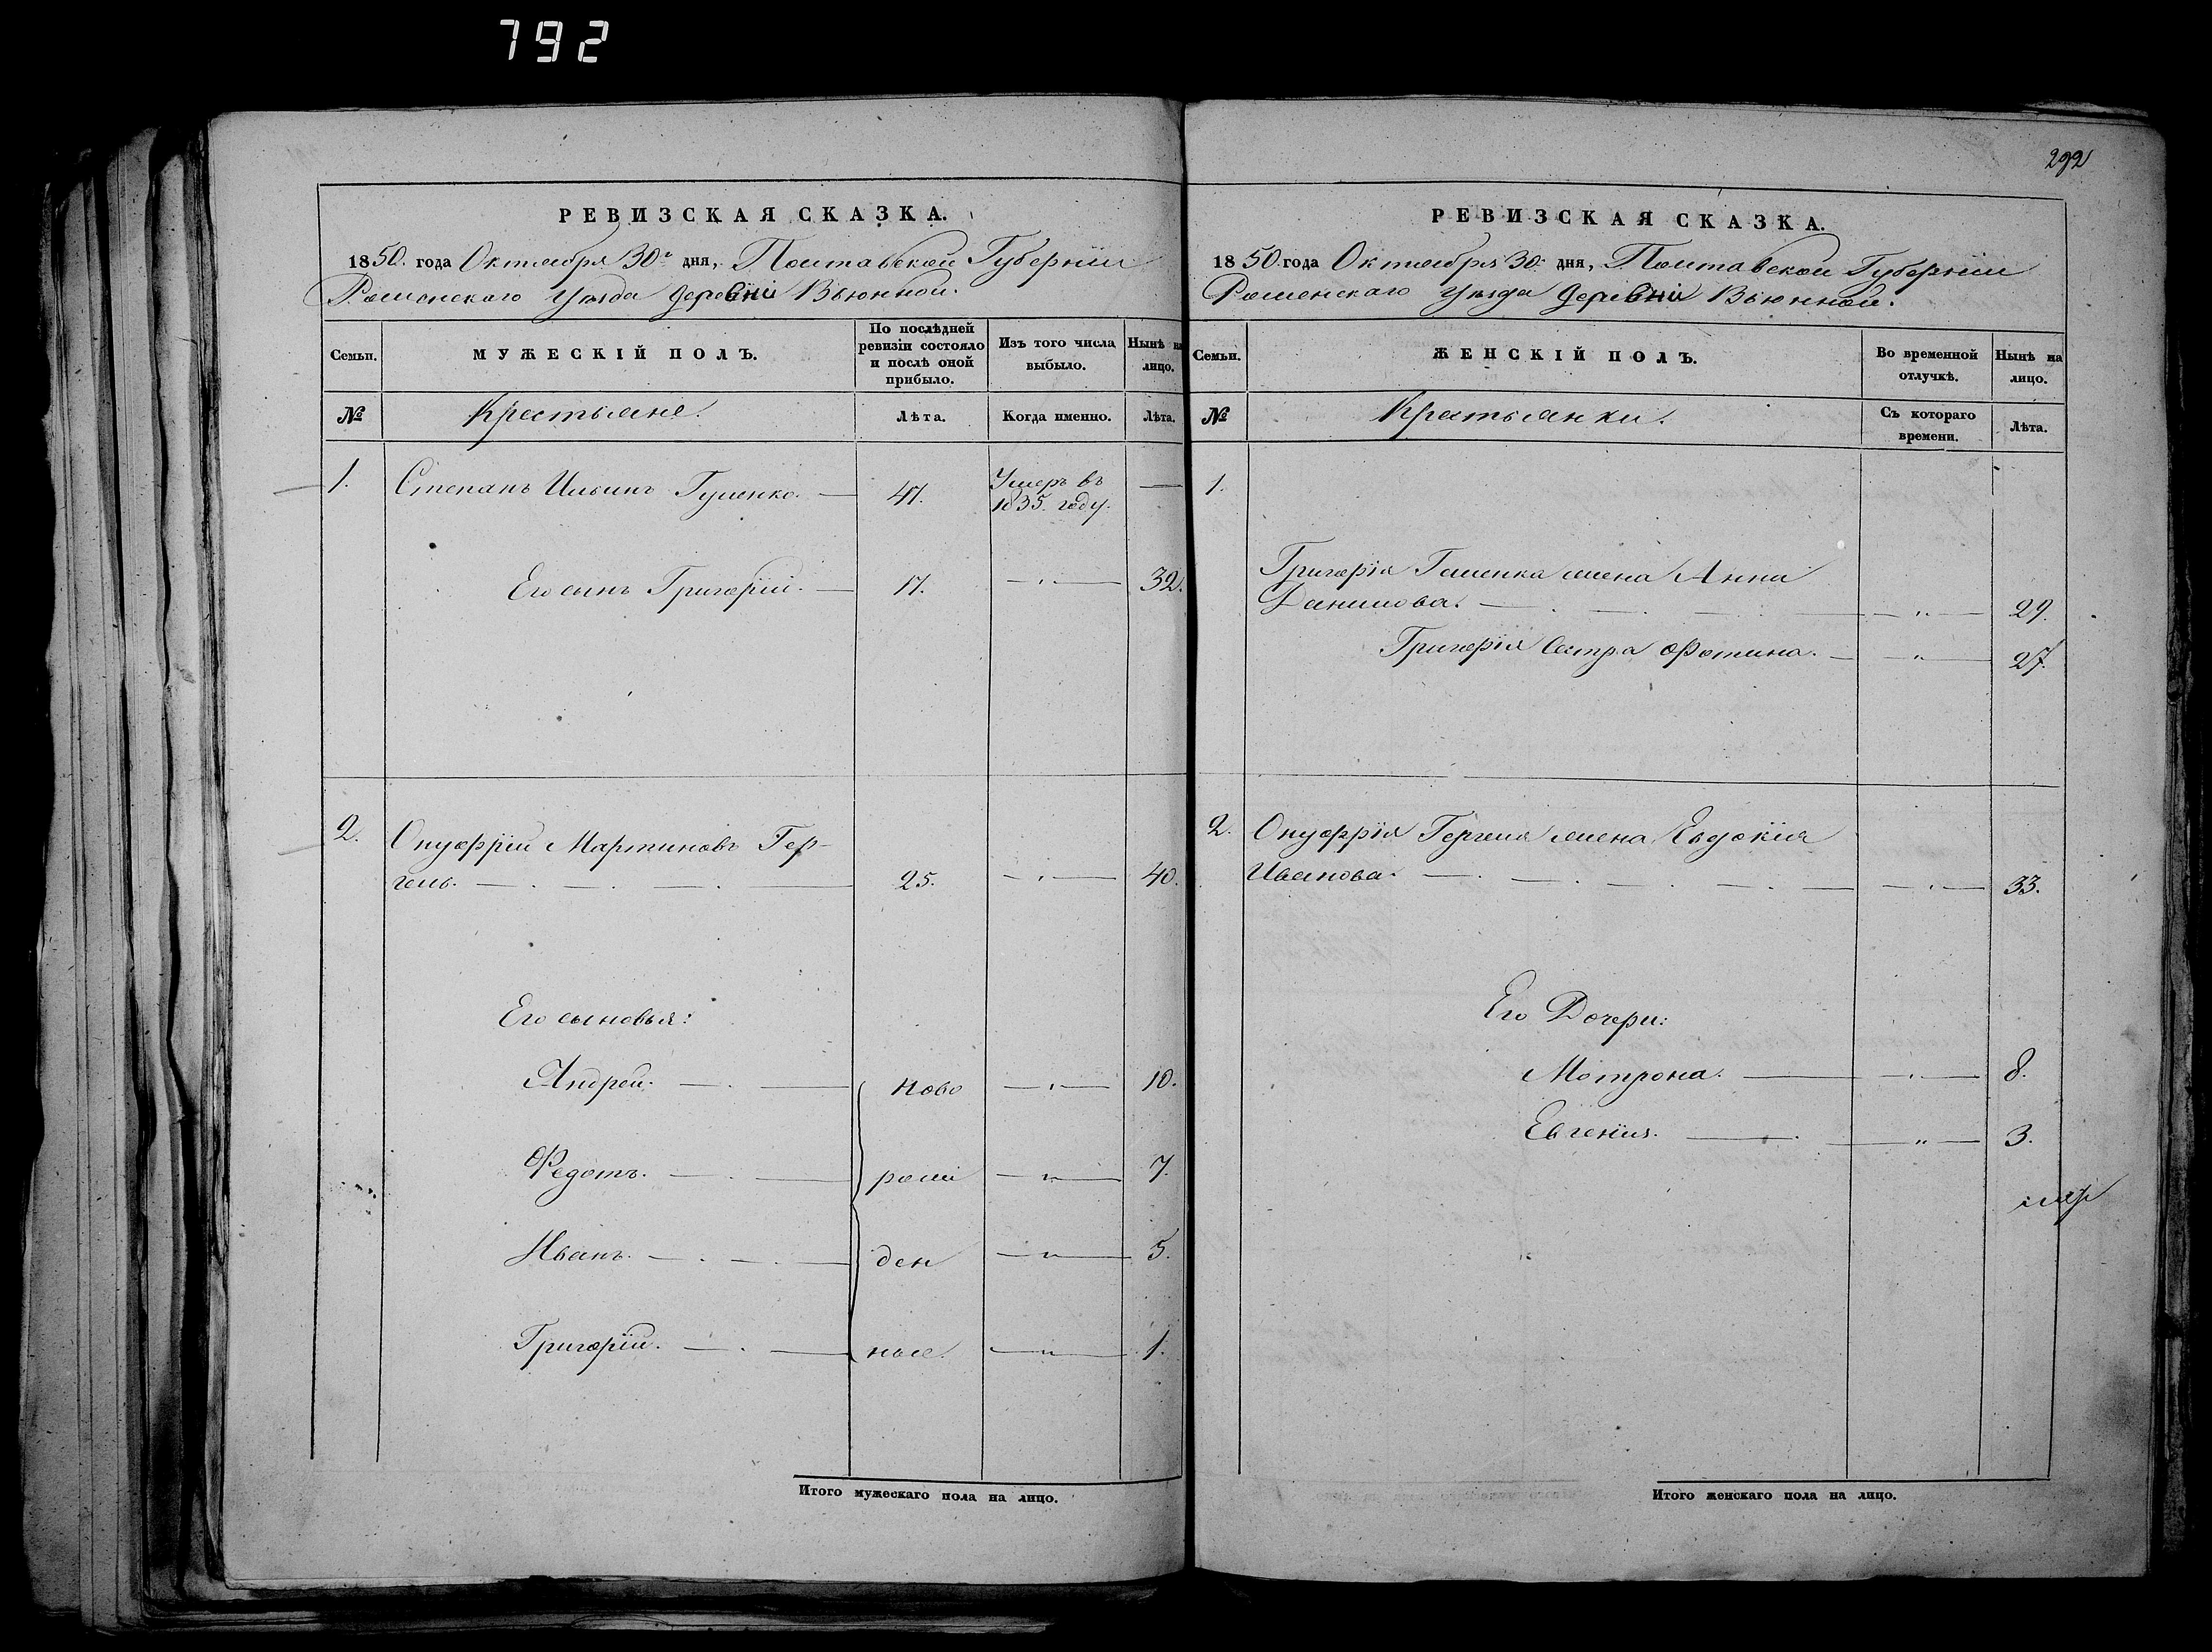 792
292
РЕВИЗСКАЯ СКАЗКА.
1850. года Октября 30го дня, Полтавской Губерніи
Роменскаго Уѣзда деревни Вьюнной.
Семьи.
МУЖЕСКІЙ ПОЛЪ.
По послѣдней ревизіи состояло и послѣ оной прибыло.
Изъ того числа выбыло.
Нынѣ на лицо.
№
Крестьяне.
Лѣта.
Когда именно.
Лѣта.
1. Степанъ Ильинъ Гуменко. — 47. Умеръ въ 1835. году. —
Его сынъ Григорій. — 17. — „ — 32.
2. Онуфрій Мартиновъ Гер-
гель. — 25. — „ — 40.
Его сыновья:
Андрей. — ново — „ — 10.
Федотъ. — рож — „ — 7.
Иванъ. — ден — „ — 5.
Григорій. — ные. — „ — 1.
Итого мужескаго пола на лицо.
РЕВИЗСКАЯ СКАЗКА.
1850 года Октября 30. дня, Полтавской Губерніи
Роменскаго Уѣзда деревни Вьюнной.
Семьи.
ЖЕНСКІЙ ПОЛЪ.
Во временной отлучкѣ.
Нынѣ на лицо.
№
Крестьянки.
Съ котораго времени.
Лѣта.
1.
Григорія Гуменка жена Анна
Данилова. — „ — 29.
Григорія сестра Фотина. — „ — 27.
2. Онуфрія Гергеля жена Евдокія
Иванова. — „ — 33.
Его Дочери:
Мотрона. — „ — 8.
Евгенія. — „ — 3.
Итого женскаго пола на лицо.